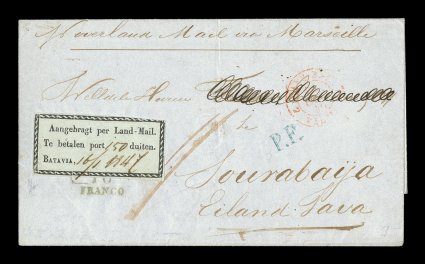 p Overland Mail via Marseille
Aangebragt per Land-Mail.
Te betalen port 150 duiten.
BATAVIA, 16/1 1847
te
P.P.
FRANCO
Sourabaÿa
Eiland Java